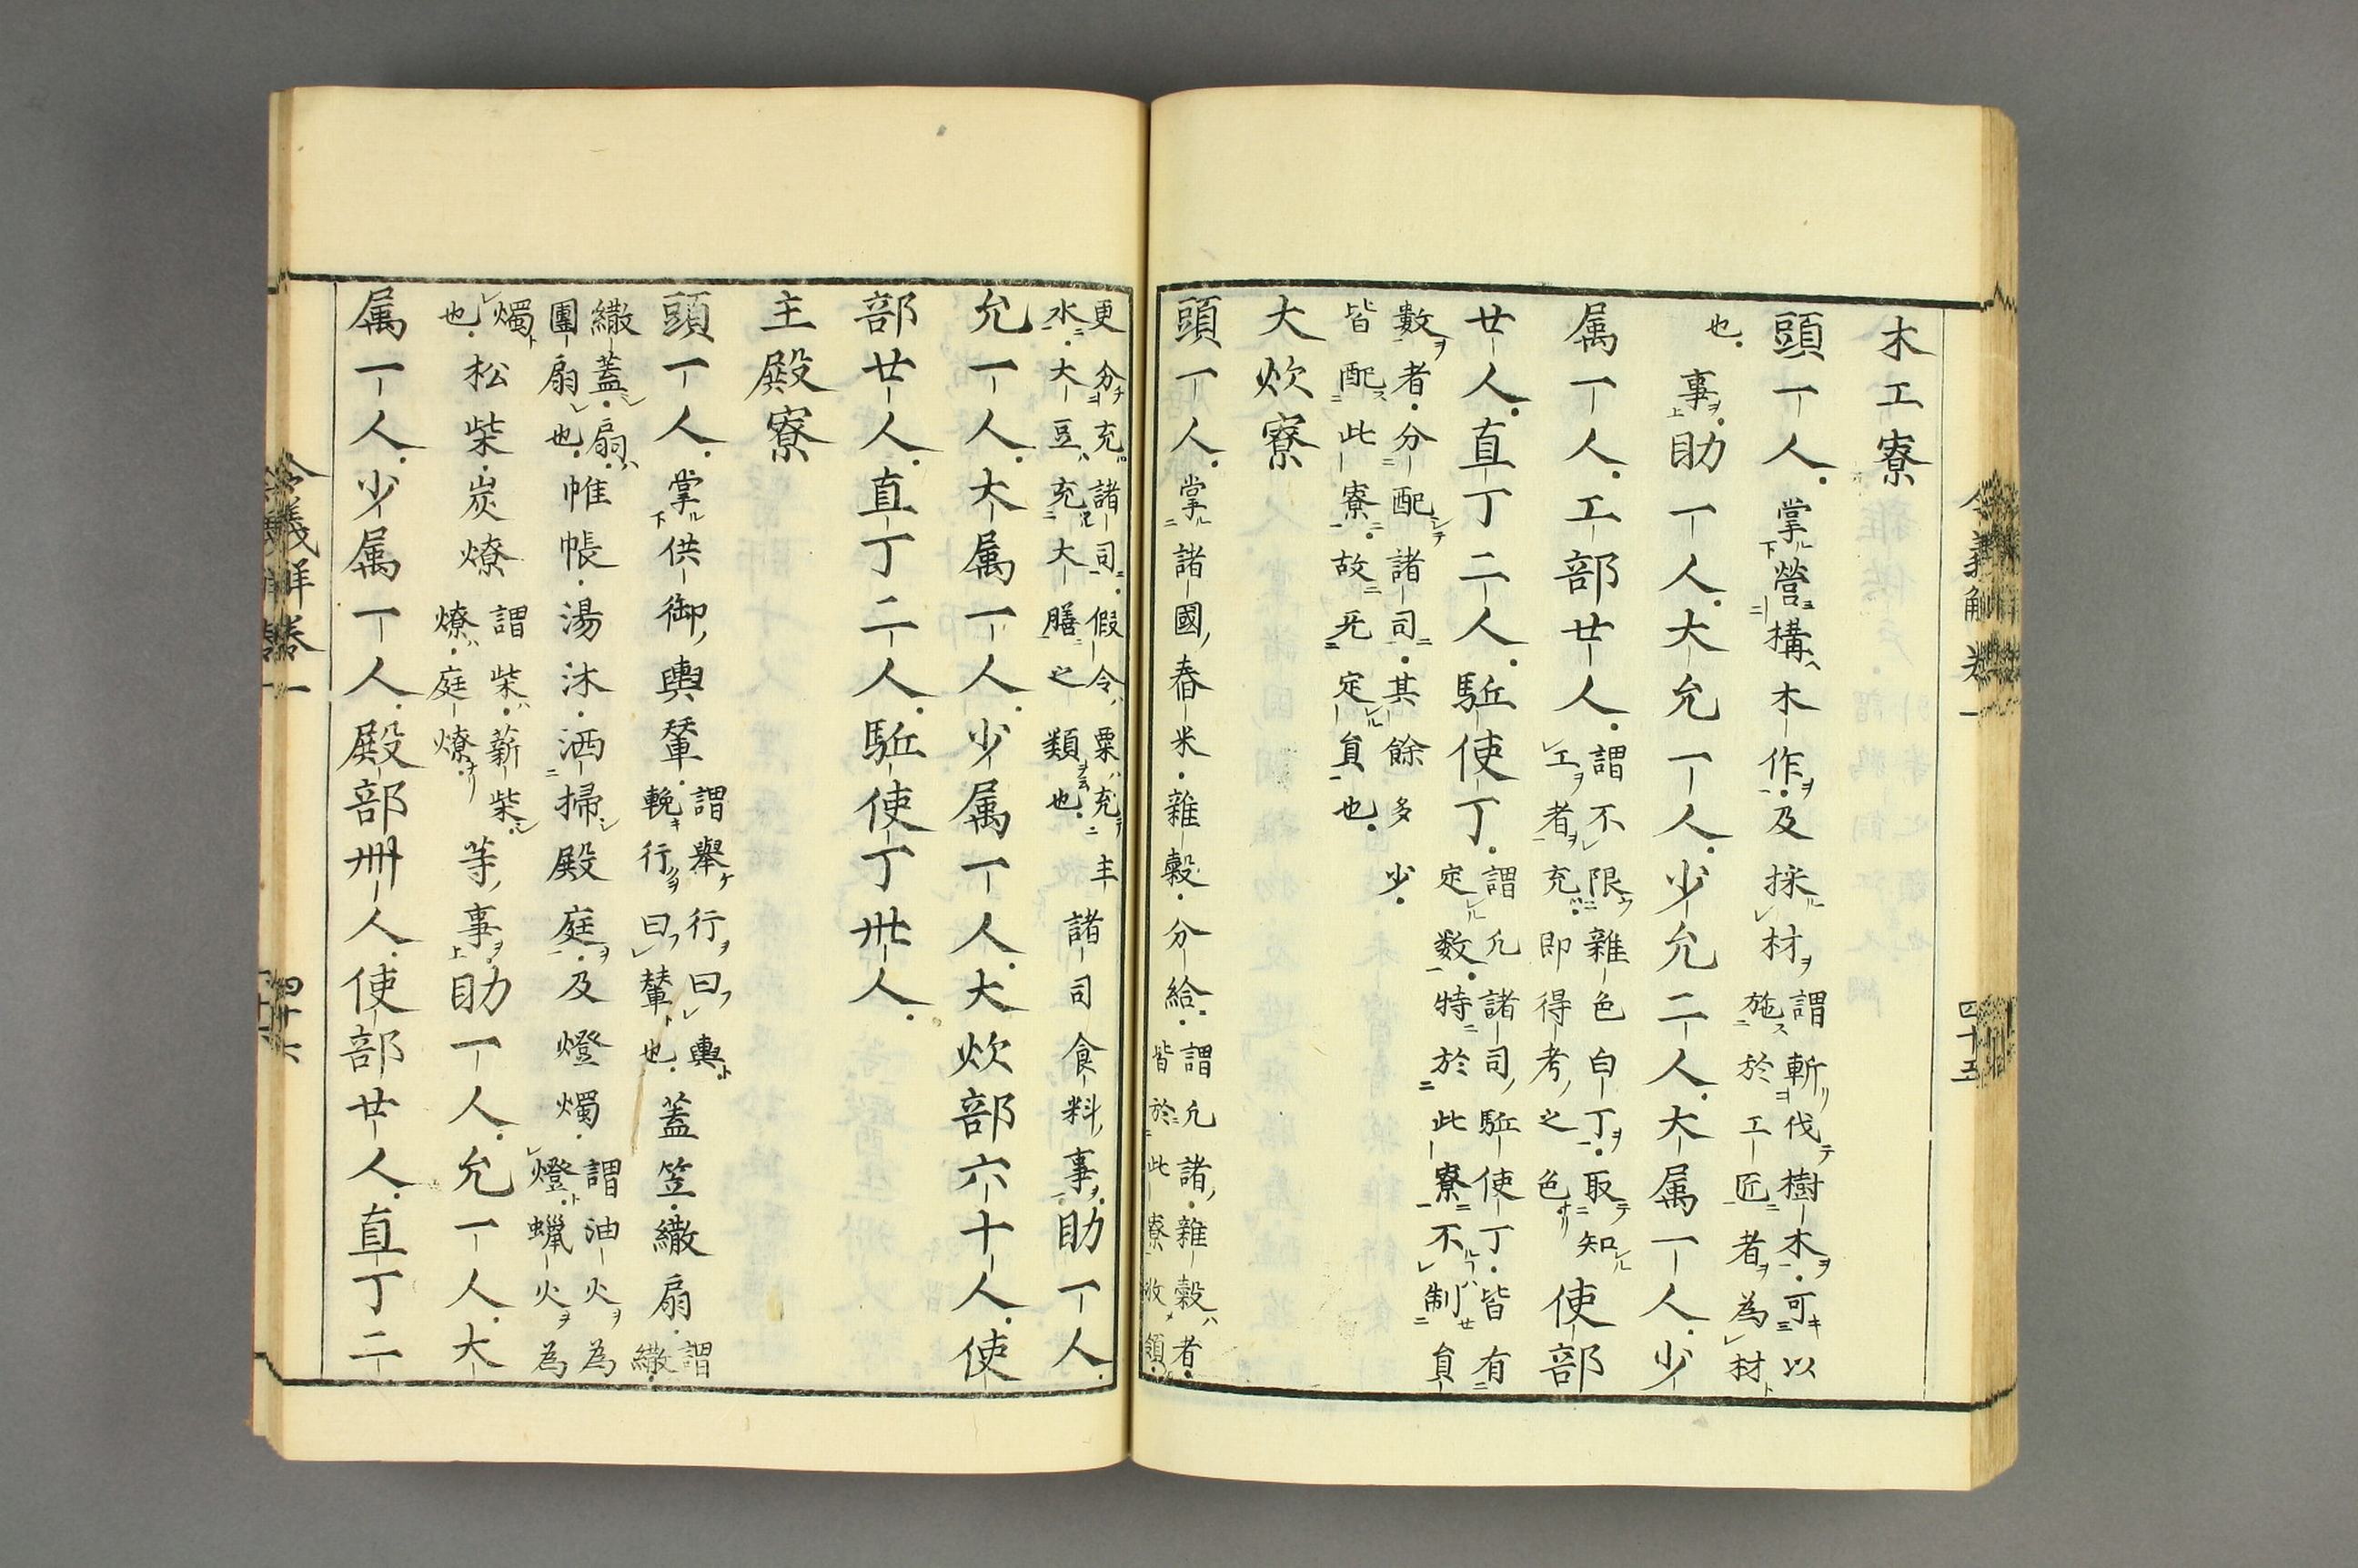 令義解卷一 四十五
木工寮
頭一人。掌營構木作。及採材
謂斬伐樹木。可以
施於工匠者為材
也。
事。助一人。大允一人。少允二人。大属一人。少
属一人。工部廿人。
謂不限雜色白丁。取知
工者充。即得考之色
使部
廿人。直丁二人。駈使丁。
謂凡諸司駈使丁。皆有
定数。特於此寮不制員
數者。分配諸司。其餘多少。
皆配此寮。故无定員也。
大炊寮
頭一人。掌諸國舂米。雜穀。分給。
謂凡諸雜穀者。
皆於此寮收領。
更分充諸司。假令粟充主
水。大豆充大膳之類也。
諸司食料事。助一人。
允一人。大属一人。少属一人。大炊部六十人。使
部廿人。直丁二人。駈使丁卅人。
主殿寮
頭一人。掌供御輿輦。
謂舉行曰輿
輓行曰輦也。
蓋笠。繖扇。
謂
繖。
繖蓋。扇。
團扇也。
帷帳。湯沐。洒掃殿庭。及燈燭。
謂油火為
燈。蝋火為
燭
也。
松柴。炭燎
謂柴。薪柴。
燎。庭燎。
等事。助一人。允一人。大
属一人。少属一人。殿部卌人。使部廿人。直丁二
令義解卷一 四十六